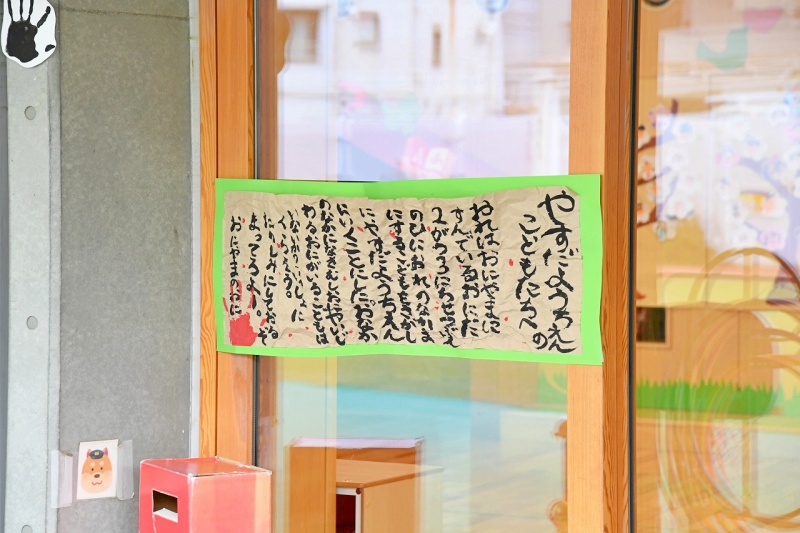 やすだようちえんの
こどもたちへ
おれはおにやまに
すんでいるおにだ
2がつ3にちせつぶん
のひにおれのなかま
にするこどもをさがし
にやすだようちえん
にいくことにした。おなか
のなかになきむしおにやいじ
わるおにがいるこどもは
いないか？いっしょに
くらそう。
たのしみにしておるぞ
まってろよー。
おにやまのおに